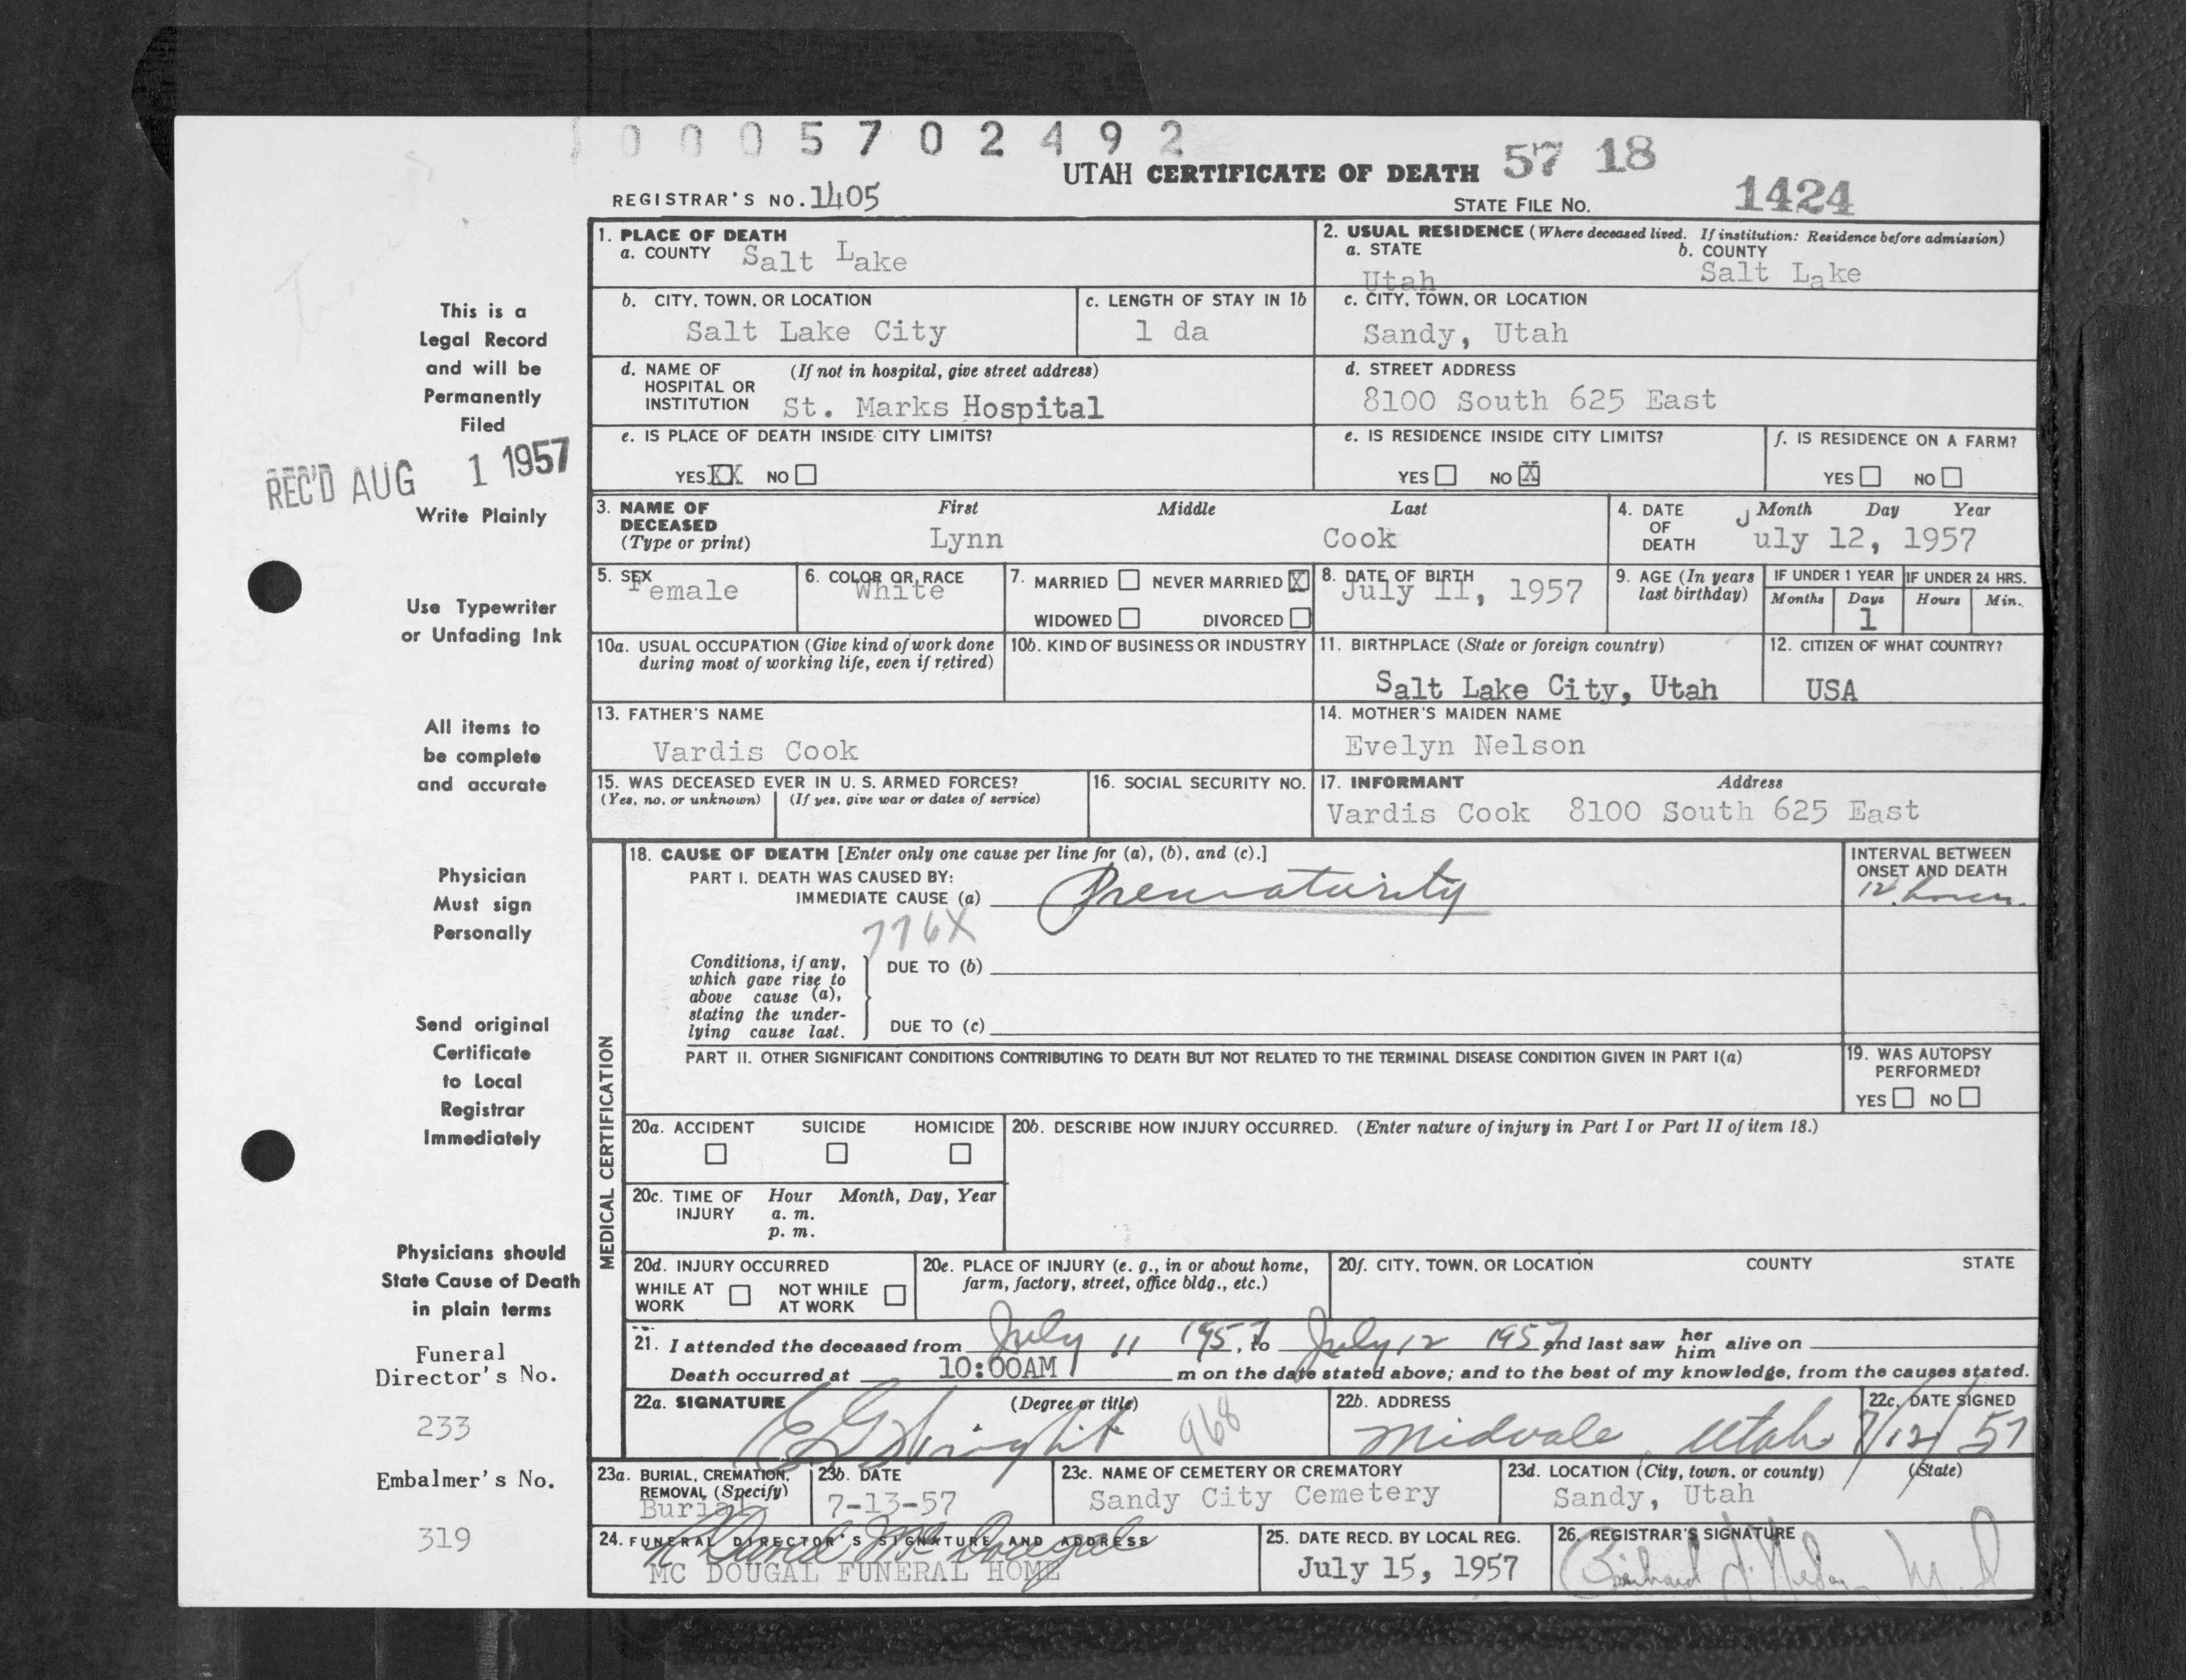 0005702492
UTAH CERTIFICATE OF DEATH 57 18
REGISTRAR'S NO. 1405
STATE FILE NO. 1424
This is a
Legal Record
and will be
Permanently
Filed
REC'D AUG 1 1957
Write Plainly
Use Typewriter
or Unfading Ink
All items to
be complete
and accurate
Physician
Must sign
Personally
Send original
Certificate
to Local
Registrar
Immediately
Physicians should
State Cause of Death
in plain terms
Funeral
Director's No.
233
Embalmer's No.
319
1. PLACE OF DEATH
a. COUNTY Salt Lake
2. USUAL RESIDENCE (Where deceased lived. If institution: Residence before admission)
a. STATE Utah
b. COUNTY Salt Lake
b. CITY, TOWN, OR LOCATION
Salt Lake City
c. LENGTH OF STAY IN 1b
1 da
c. CITY, TOWN, OR LOCATION
Sandy, Utah
d. NAME OF (If not in hospital, give street address)
HOSPITAL OR
INSTITUTION St. Marks Hospital
d. STREET ADDRESS
8100 South 625 East
e. IS PLACE OF DEATH INSIDE CITY LIMITS?
YES XX NO
e. IS RESIDENCE INSIDE CITY LIMITS?
YES NO X
f. IS RESIDENCE ON A FARM?
YES NO
3. NAME OF
DECEASED
(Type or print)
First Middle Last
Lynn Cook
4. DATE
OF
DEATH
Month Day Year
July 12, 1957
5. SEX
Female
6. COLOR OR RACE
White
7. MARRIED NEVER MARRIED X
WIDOWED DIVORCED
8. DATE OF BIRTH
July 11, 1957
9. AGE (In years
last birthday)
IF UNDER 1 YEAR
Months Days
1
IF UNDER 24 HRS.
Hours Min.
10a. USUAL OCCUPATION (Give kind of work done
during most of working life, even if retired)
10b. KIND OF BUSINESS OR INDUSTRY
11. BIRTHPLACE (State or foreign country)
Salt Lake City, Utah
12. CITIZEN OF WHAT COUNTRY?
USA
13. FATHER'S NAME
Vardis Cook
14. MOTHER'S MAIDEN NAME
Evelyn Nelson
15. WAS DECEASED EVER IN U. S. ARMED FORCES?
(Yes, no, or unknown) (If yes, give war or dates of service)
16. SOCIAL SECURITY NO.
17. INFORMANT Address
Vardis Cook 8100 South 625 East
MEDICAL CERTIFICATION
18. CAUSE OF DEATH [Enter only one cause per line for (a), (b), and (c).]
PART I. DEATH WAS CAUSED BY:
IMMEDIATE CAUSE (a) Prematurity
INTERVAL BETWEEN
ONSET AND DEATH
12 hours
776X
Conditions, if any,
which gave rise to
above cause (a),
stating the under-
lying cause last.
DUE TO (b)
DUE TO (c)
PART II. OTHER SIGNIFICANT CONDITIONS CONTRIBUTING TO DEATH BUT NOT RELATED TO THE TERMINAL DISEASE CONDITION GIVEN IN PART I(a)
19. WAS AUTOPSY
PERFORMED?
YES NO
20a. ACCIDENT SUICIDE HOMICIDE
20b. DESCRIBE HOW INJURY OCCURRED. (Enter nature of injury in Part I or Part II of item 18.)
20c. TIME OF Hour Month, Day, Year
INJURY a. m.
p. m.
20d. INJURY OCCURRED
WHILE AT NOT WHILE
WORK AT WORK
20e. PLACE OF INJURY (e. g., in or about home,
farm, factory, street, office bldg., etc.)
20f. CITY, TOWN, OR LOCATION COUNTY STATE
21. I attended the deceased from July 11 1957, to July 12 1957 and last saw her him alive on
Death occurred at 10:00AM m on the date stated above; and to the best of my knowledge, from the causes stated.
22a. SIGNATURE (Degree or title)
E G Wright 968
22b. ADDRESS
Midvale, Utah
22c. DATE SIGNED
7/12/57
23a. BURIAL, CREMATION,
REMOVAL (Specify)
Burial
23b. DATE
7-13-57
23c. NAME OF CEMETERY OR CREMATORY
Sandy City Cemetery
23d. LOCATION (City, town, or county) (State)
Sandy, Utah
24. FUNERAL DIRECTOR'S SIGNATURE AND ADDRESS
David McDougal
MC DOUGAL FUNERAL HOME
25. DATE RECD. BY LOCAL REG.
July 15, 1957
26. REGISTRAR'S SIGNATURE
M D